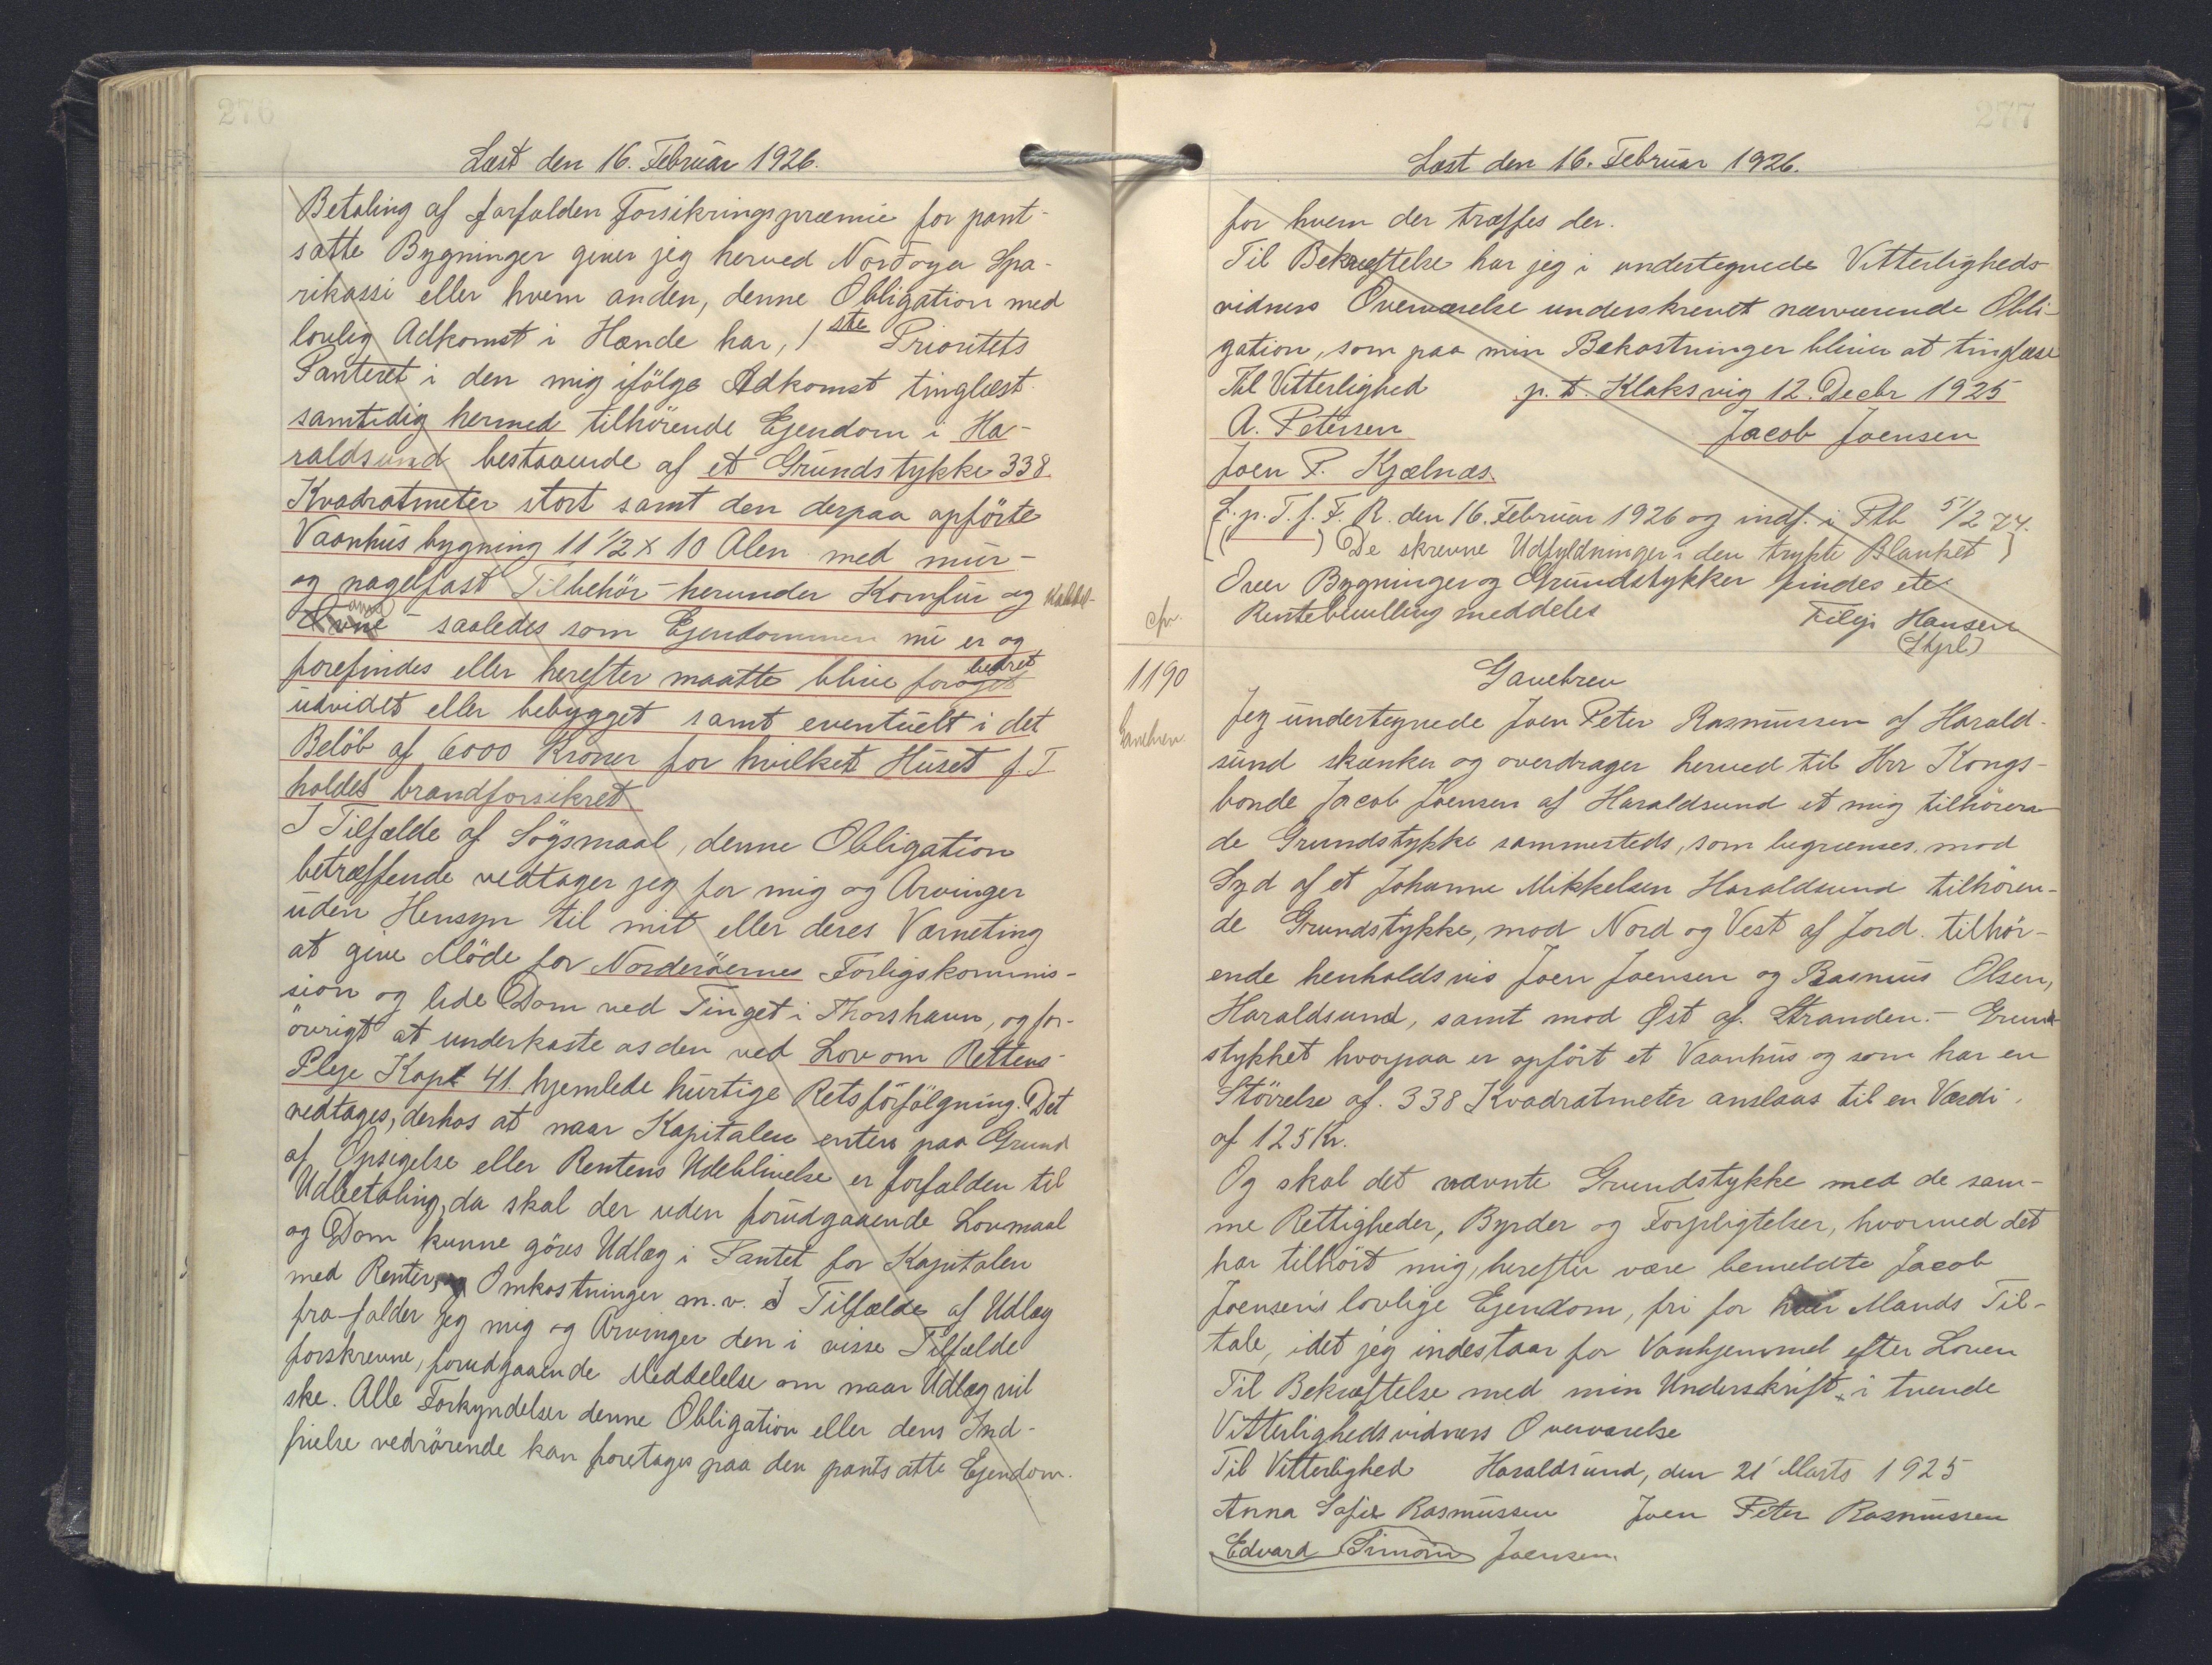 276
Læst den 16. Februar 1926.
Betaling af forfalden Forsikringspræmie for pant-
satte Bygninger giver jeg herved Nordoya Spa-
rikassi eller hvem anden, denne Obligation med
lovlig Adkomst i Hænde har, 1ste Prioritets
Panteret i den mig ifölge Adkomst tinglæst
samtidig hermed tilhörende Ejendom i Ha-
raldsund bestaaende af et Grundstykke 338
Kvadratmeter stort samt den derpaa opförte
Vaanhusbygning 11 1/2 x 10 Alen med mur-
og nagelfast Tilbehör - herunder Komfur og
Ovne - saaledes som Ejendommen nu er og
forefindes eller herefter maatte blive forbedret
udvidet eller bebygget samt eventuelt i det
Belöb af 6000 Kroner for hvilket Huset p. T.
holdes brandforsikret
I Tilfælde af Sögsmaal, denne Obligation
betræffende vedtager jeg for mig og Arvinger
uden Hensyn til mit eller deres Værneting
at give Möde for Norderöernes Forligskommis-
sion og lide Dom ved Tinget i Thorshavn, og for-
övrigt at underkaste os den ved Lov om Rettens
Pleje Kapt 41 hjemlede hurtige Retsforfölgning. Det
vedtages, derhos at naar Kapitalen enten paa Grund
af Opsigelse eller Rentens Udeblivelse er forfalden til
Udbetaling, da skal der uden forudgaaende Lovmaal
og Dom kunne göres Udlæg i Pantet for Kapitalen
med Renter, og Omkostninger m.v. I Tilfælde af Udlæg
fra-falder jeg mig og Arvinger den i visse Tilfælde
forskrevne, forudgaaende Meddelelse om naar Udlæg vil
ske. Alle Forkyndelser denne Obligation eller dens Ind-
frielse vedrörende kan foretages paa den pantsatte Ejendom.
277
Læst den 16. Februar 1926.
for hvem der træffes der.
Til Bekræftelse har jeg i undertegnede Vitterligheds
vidners Overværelse underskrevet nærværende Obli-
gation, som paa min Bekostninger bliver at tinglæse
Til Vitterlighed p. t. Klaksvig 12. Decbr 1925
A. Petersen Jacob Joensen
Joen P. Kjælnæs.
L. p. T. f. F. R. den 16. Februar 1926 og indf. i Ptb 51/2 74.
( ) De skrevne Udfyldninger i den trykte Blanket
Over Bygninger og Grundstykker findes ete
cfr. Rentebevilling meddeles Filip Hansen
(Stpl)
1190 Gavebrev
Gavebrev. Jeg undertegnede Joen Peter Rasmussen af Harald-
sund skænker og overdrager herved til Hrr Kongs-
bonde Jacob Joensen af Haraldsund et mig tilhören
de Grundstykke sammesteds, som begrænses mod
Syd af et Johanne Mikkelsen Haraldsund tilhören-
de Grundstykke, mod Nord og Vest af Jord tilhör-
ende henholdsvis Joen Joensen og Rasmus Olsen,
Haraldsund, samt mod Øst af Stranden. - Grund
stykket hvorpaa er opfört et Vaanhus og som har en
Störrelse af 338 Kvadratmeter anslaas til en Værdi
af 125 Kr.
Og skal det nævnte Grundstykke med de sam-
me Rettigheder, Byrder og Forpligtelser, hvormed det
har tilhört mig, herefter være bemeldte Jacob
Joensen's lovlige Ejendom, fri for hver Mands Til-
tale, idet jeg indestaar for Vanhjemmel efter Loven
Til Bekræftelse med min Underskrift i tvende
Vitterlighedsvidners Overværelse
Til Vitterlighed Haraldsund, den 21' Marts 1925
Anna Sofie Rasmussen Joen Peter Rasmussen
Edvard Simon Joensen.